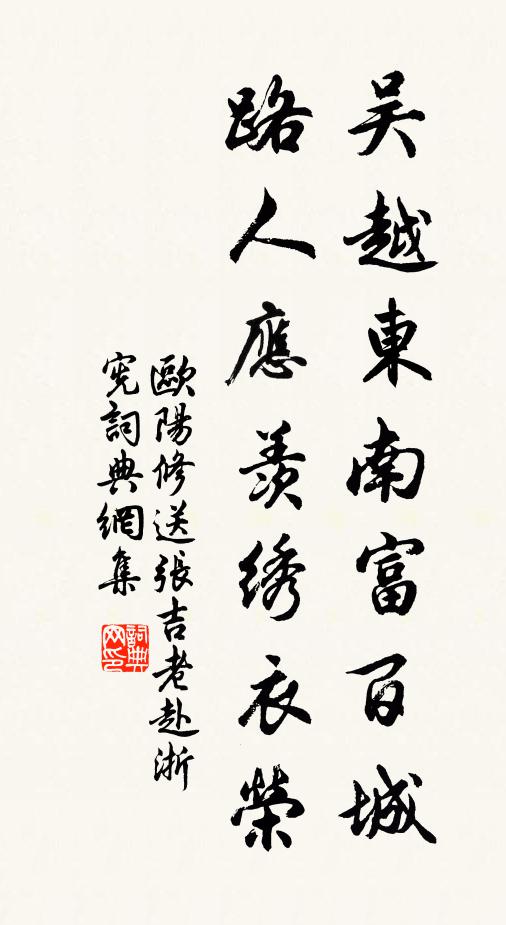 吴越東南富百城
路人應羨綉衣榮
歐陽修送張吉老赴浙
宪詞典網集
詞典
网印